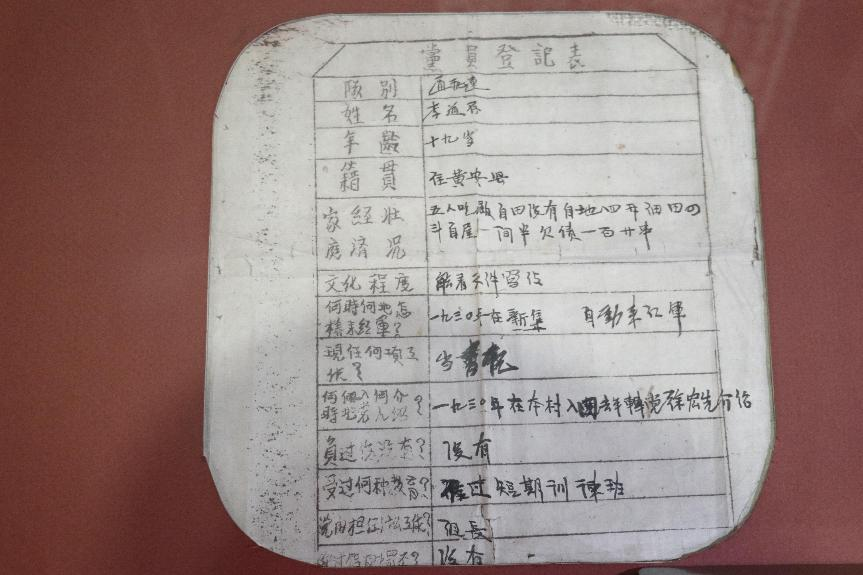 黨員登記表
隊別
姓名 李
年齡 十九岁
籍貫 住黄安县
家庭經濟狀況 五人吃飯自田没有自地八升佃田四
斗自屋一间半欠债一百廿串
文化程度 能看文件寫信
何時何地怎 一九三〇年在新集 自動來红軍
樣來紅軍?
現任何項工 当書記
作?
何時何地 一九三〇年在本村入團去年轉党徐宏先介绍
何人介绍?
負过伤没有? 没有
受过何种教育? 过短期训練班
党内担任 工作? 组長
没有